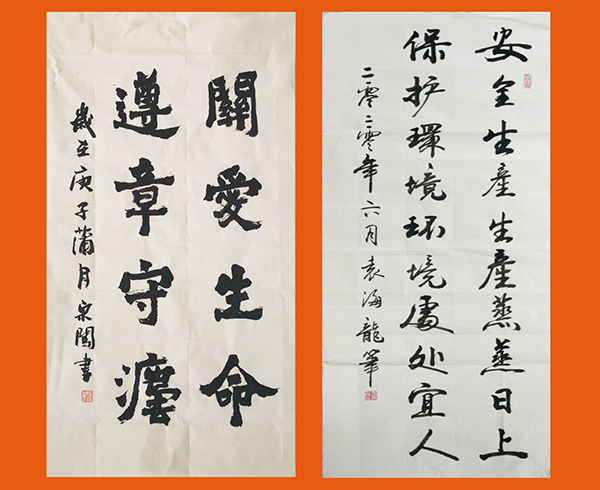 安全生産生産蒸蒸日上
保护環境环境處处宜人
二零二零年六月袁海龍筆
關愛生命
遵章守灋
歲庚子蒲月宋書